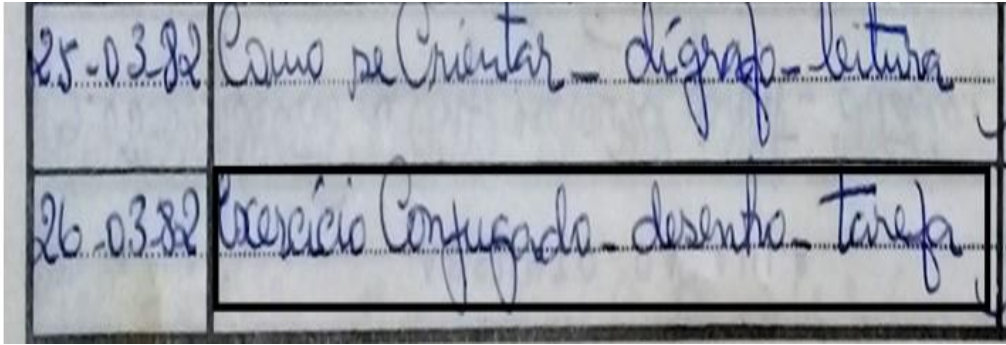 25-03-82 Como se Orientar - dígrafo - leitura
26-03-82 Exercício Conjugado - desenho - tarefa